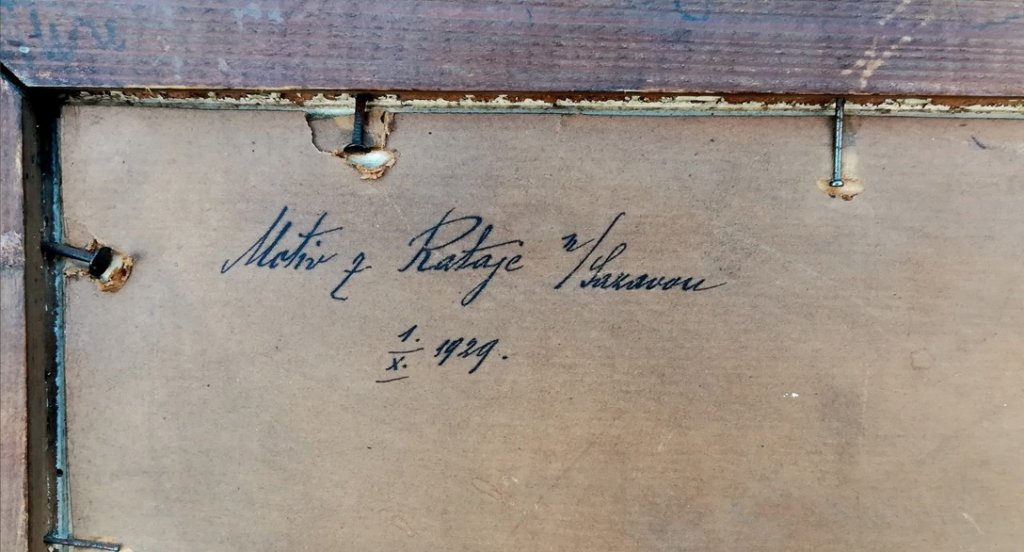 Motiv z Rataje n/Sazavou
1./X. 1929.